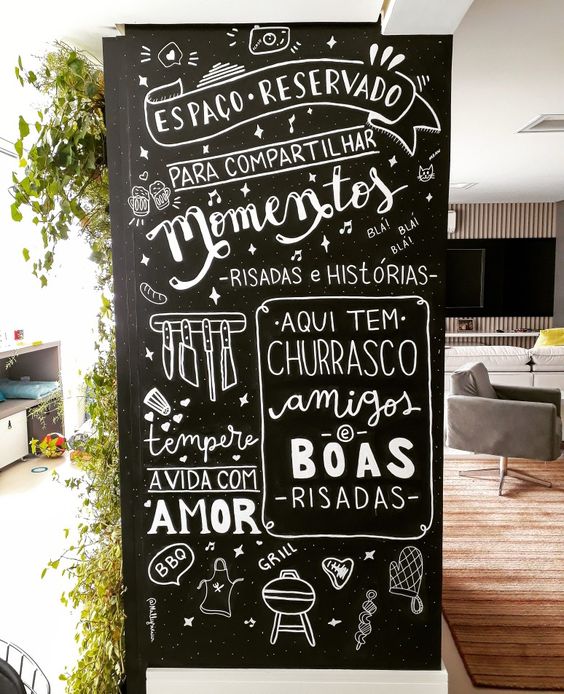 ESPAÇO · RESERVADO
PARA COMPARTILHAR
Momentos
BLÁ! BLÁ!
BLÁ!
- RISADAS e HISTÓRIAS -
· AQUI TEM ·
CHURRASCO
amigos
- e -
BOAS
- RISADAS -
tempere
A VIDA COM
AMOR
BBQ
GRILL